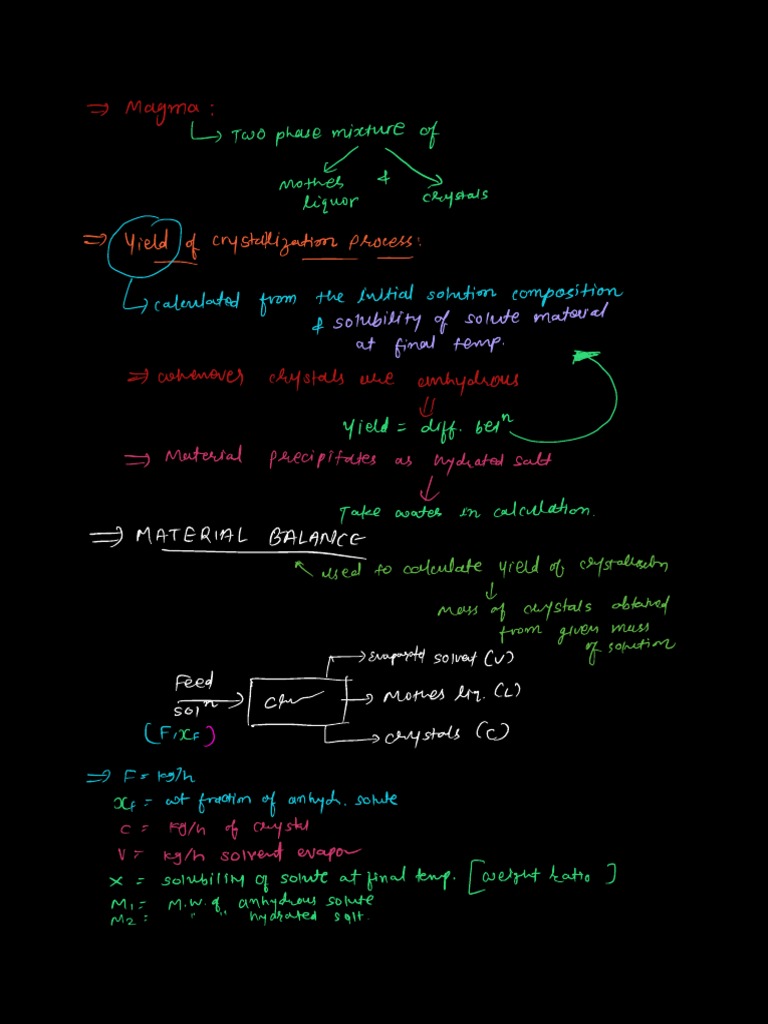 ⇒ Magma :
↳ Two phase mixture of
Mother liquor & crystals
⇒ Yield of crystallization process :
↳ calculated from the initial solution composition
& solubility of solute material
at final temp.
⇒ whenever crystals are anhydrous
⇓
Yield = diff. betⁿ
⇒ Material precipitates as hydrated salt
↓
Take water in calculation.
⇒ MATERIAL BALANCE
↖ used to calculate yield of crystallization
↓
Mass of crystals obtained
from given mass
of solution
→ Evaporated solvent (V)
Feed
solⁿ → → Mother liq. (L)
(F, xF)
→ crystals (C)
⇒ F = kg/h
xF = wt fraction of anhyd. solute
C = kg/h of crystal
V = kg/h solvent evapor
X = solubility of solute at final temp. [weight ratio]
M1 = M.W. of anhydrous solute
M2 = " " hydrated salt.